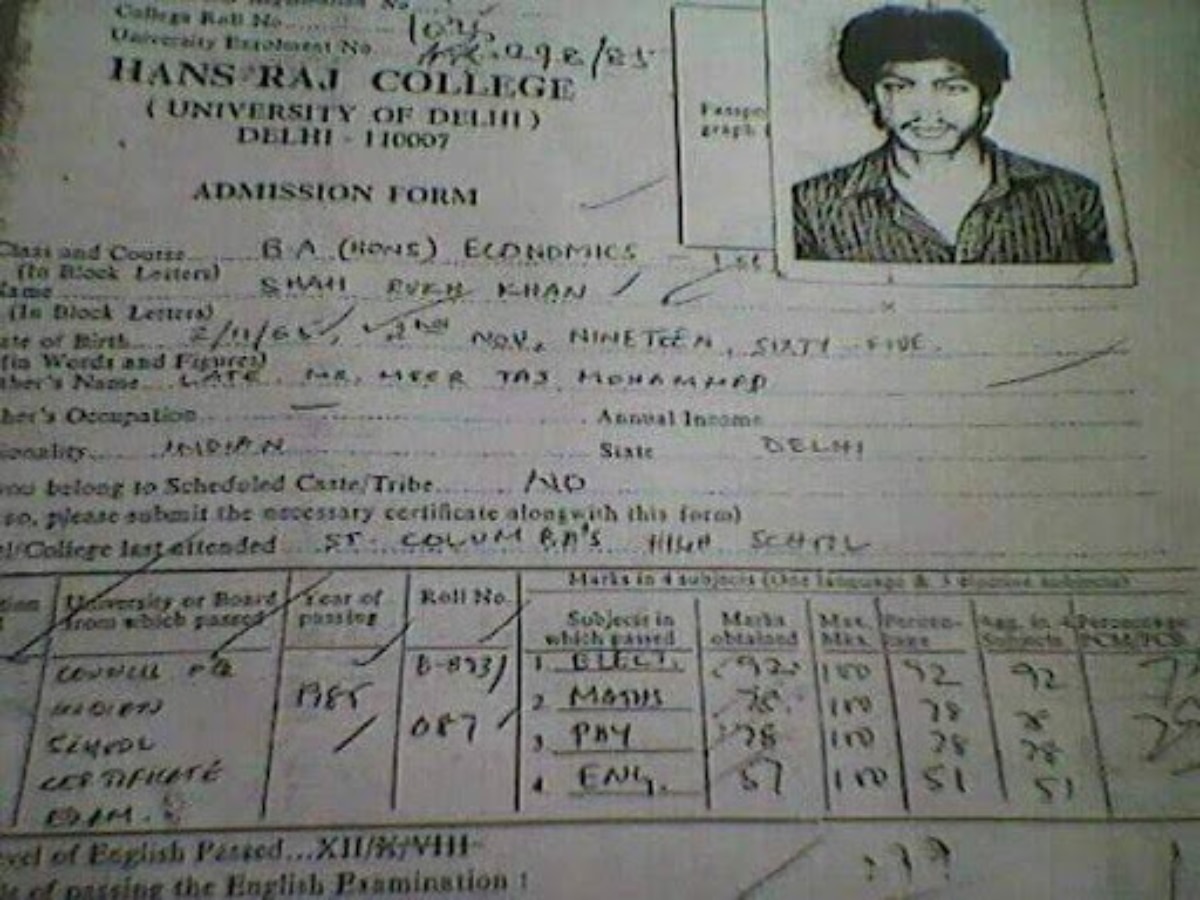 College Roll No. 104
University Enrolment No. 298/85
HANS RAJ COLLEGE
( UNIVERSITY OF DELHI )
DELHI - 110007
ADMISSION FORM
Class and Course B.A (HONS) ECONOMICS
(In Block Letters)
Name SHAH RUKH KHAN
(In Block Letters)
ate of Birth 2/11/65 2ND NOV, NINETEEN, SIXTY FIVE.
(in Words and Figures)
ther's Name LATE. MR. MEER TAJ MOHAMMED
her's Occupation — Annual Income
ionality INDIAN State DELHI
you belong to Scheduled Caste/Tribe NO
so, please submit the necessary certificate alongwith this form)
l/College last attended ST. COLUMBA'S HIGH SCHOOL
Marks in 4 subjects (One language & 3 elective subjects)
University or Board from which passed Year of passing Roll No. Subjects in which passed Marks obtained Max. Mks. Percentage Agg. in 4 Subjects Percentage PCM/PCB
COUNCIL FOR INDIAN SCHOOL CERTIFICATE EXAM. 1985 087
1. ELECT. 92 100 92 92
2 MATHS 78 100 78 78
3 PHY 78 100 78 78
4 ENG. 51 100 51 51
evel of English Passed...XII/X/VIII
of passing the English Examination :